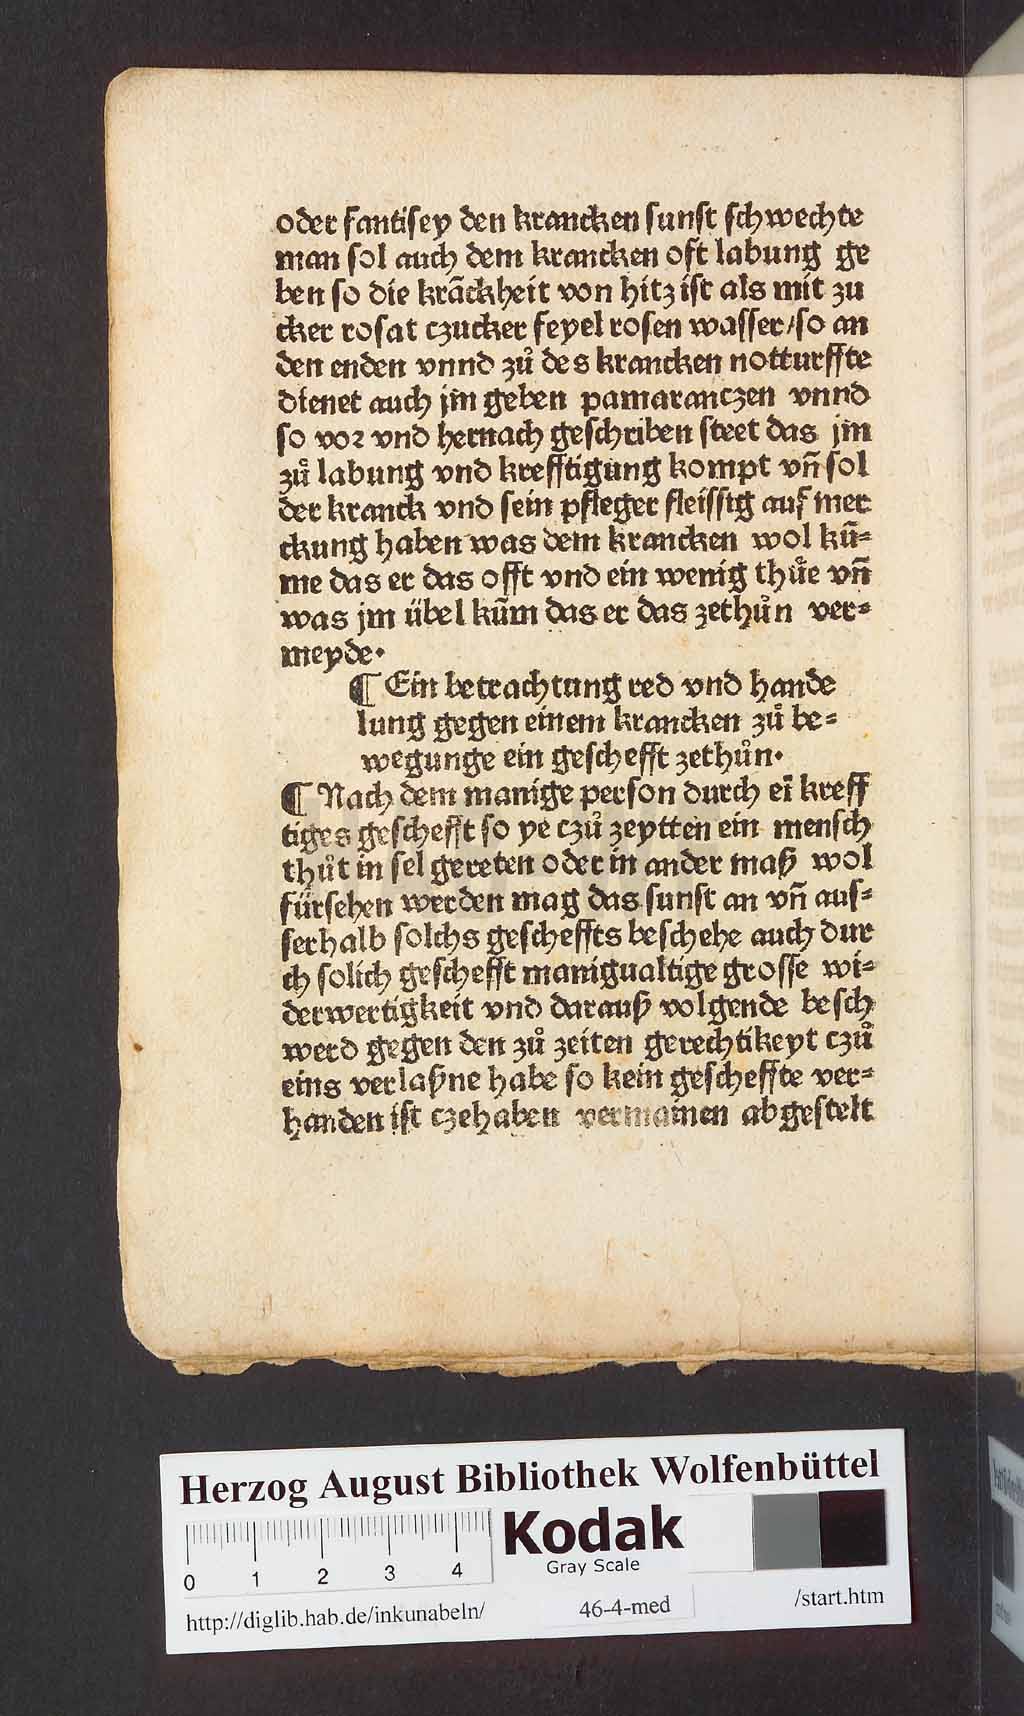 oder fantisey den krancken sunst schwechte
man sol auch dem krancken oft labung ge
ben so die krāckheit von hitz ist als mit zu
cker rosat czucker feyel rosen wasser/so an
den enden vnnd zů des krancken notturffte
dienet auch jm geben pamaranczen vnnd
so voꝛ vnd hernach geschriben steet das jm
zů labung vnd krefftigung kompt vñ sol
der kranck vnd sein pfleger fleissig auf mer
ckung haben was dem krancken wol kū⸗
me das er das offt vnd ein wenig thůe vñ
was jm übel kūm das er das zethůn ver⸗
meyde·
¶ Ein betrachtung red vnd hande
lung gegen einem krancken zů be⸗
wegunge ein geschefft zethůn·
¶ Nach dem manige person durch eī kreff
tiges geschefft so ye czů zeytten ein mensch
thůt in sel gereten oder in ander maß wol
fürsehen werden mag das sunst an vñ aus⸗
serhalb solchs gescheffts beschehe auch dur
ch solich geschefft manigualtige grosse wi⸗
derwertigkeit vnd darauß volgende besch
werd gegen den zů zeiten gerechtikeyt czů
eins verlaßne habe so kein gescheffte ver⸗
handen ist czehaben vermainen abgestelt
Herzog August Bibliothek Wolfenbüttel
Kodak
Gray Scale
0 1 2 3 4
http://diglib.hab.de/inkunabeln/ 46-4-med /start.htm